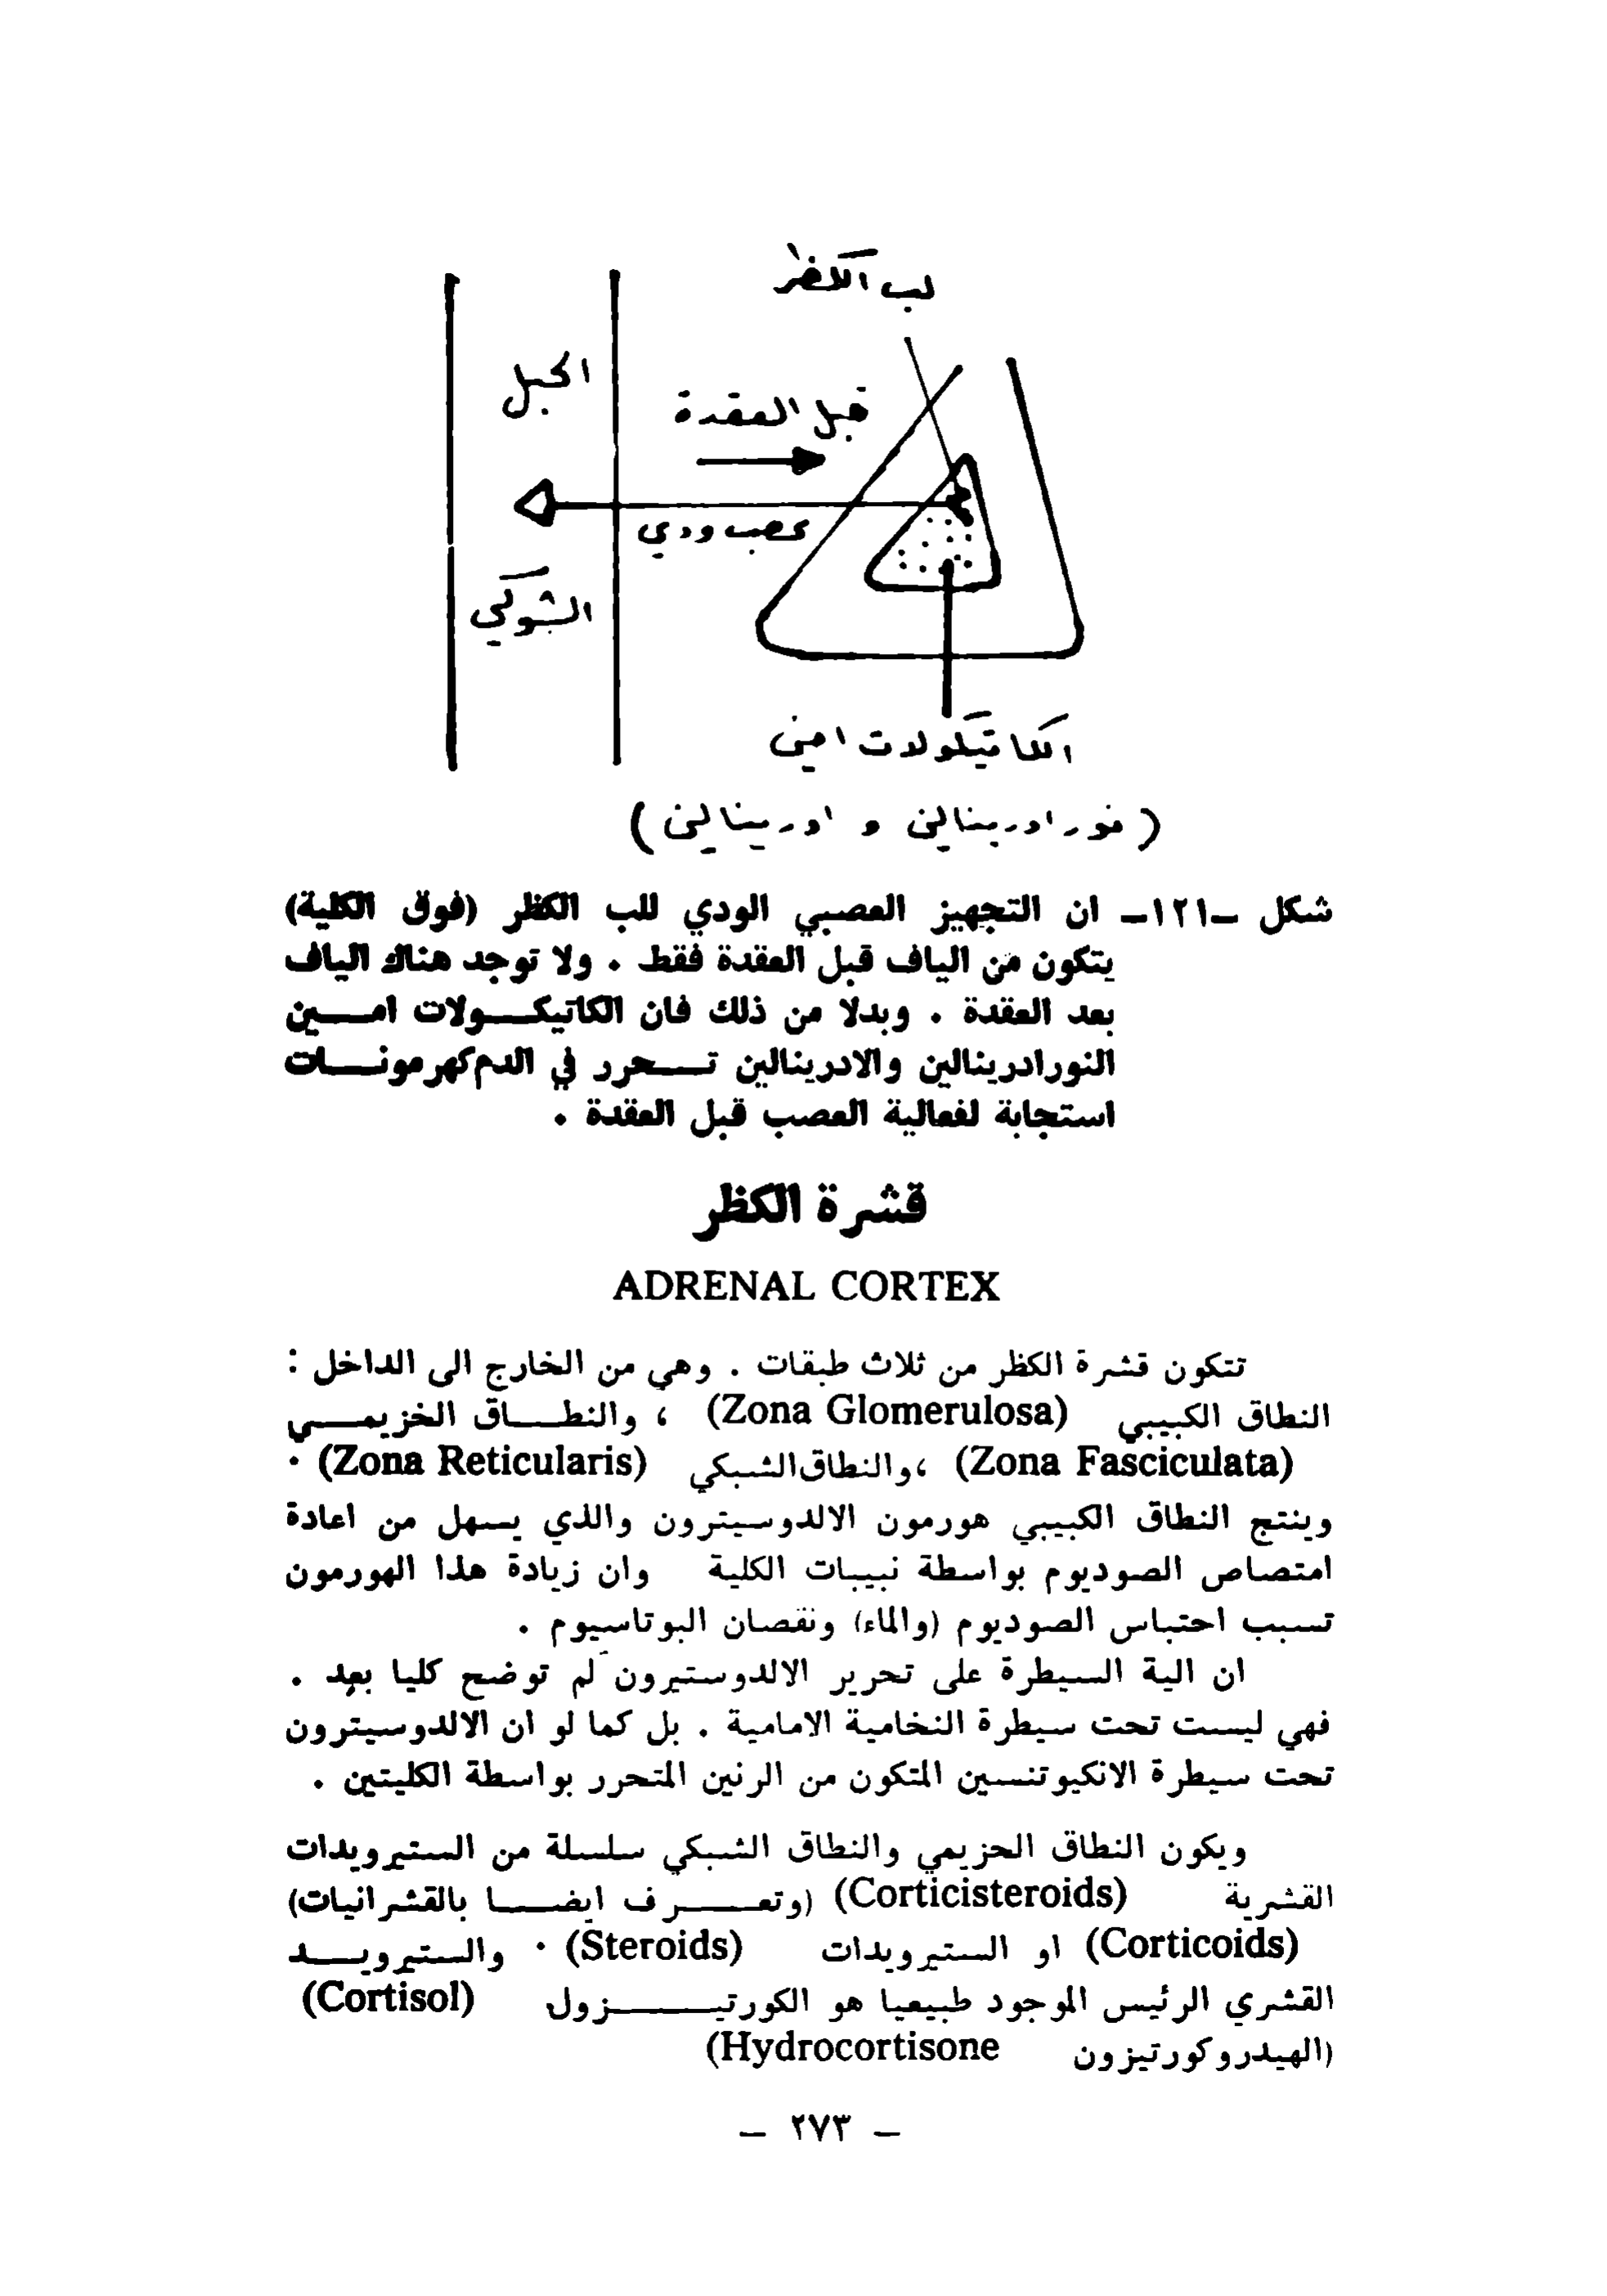 لب الكظر
الحبل
قبل العقدة
عصب ودي
الشوكي
الكاتيكولات امين
( نورادرينالين و ادرينالين )
شكل -١٢١- ان التجهيز العصبي الودي للب الكظر (فوق الكلية)
يتكون من الياف قبل العقدة فقط . ولا توجد هناك الياف
بعد العقدة . وبدلا من ذلك فان الكاتيكولات امين
النورادرينالين والادرينالين تحرر في الدم كهرمونات
استجابة لفعالية العصب قبل العقدة .
قشرة الكظر
ADRENAL CORTEX
تتكون قشرة الكظر من ثلاث طبقات . وهي من الخارج الى الداخل :
النطاق الكبيبي (Zona Glomerulosa) ، والنطاق الخزيمي
(Zona Fasciculata) ،والنطاق الشبكي (Zona Reticularis) .
وينتج النطاق الكبيبي هورمون الالدوسيترون والذي يسهل من اعادة
امتصاص الصوديوم بواسطة نبيبات الكلية وان زيادة هذا الهورمون
تسبب احتباس الصوديوم (والماء) ونقصان البوتاسيوم .
ان الية السيطرة على تحرير الالدوستيرون لم توضح كليا بعد .
فهي ليست تحت سيطرة النخامية الامامية . بل كما لو ان الالدوسيترون
تحت سيطرة الانكيوتنسين المتكون من الرنين المتحرر بواسطة الكليتين .
ويكون النطاق الحزيمي والنطاق الشبكي سلسلة من الستيرويدات
القشرية (Corticisteroids) (وتعرف ايضا بالقشرانيات)
(Corticoids) او الستيرويدات (Steroids) . والستيرويد
القشري الرئيس الموجود طبيعيا هو الكورتيزول (Cortisol)
(الهيدروكورتيزون Hydrocortisone)
- ٢٧٣ -